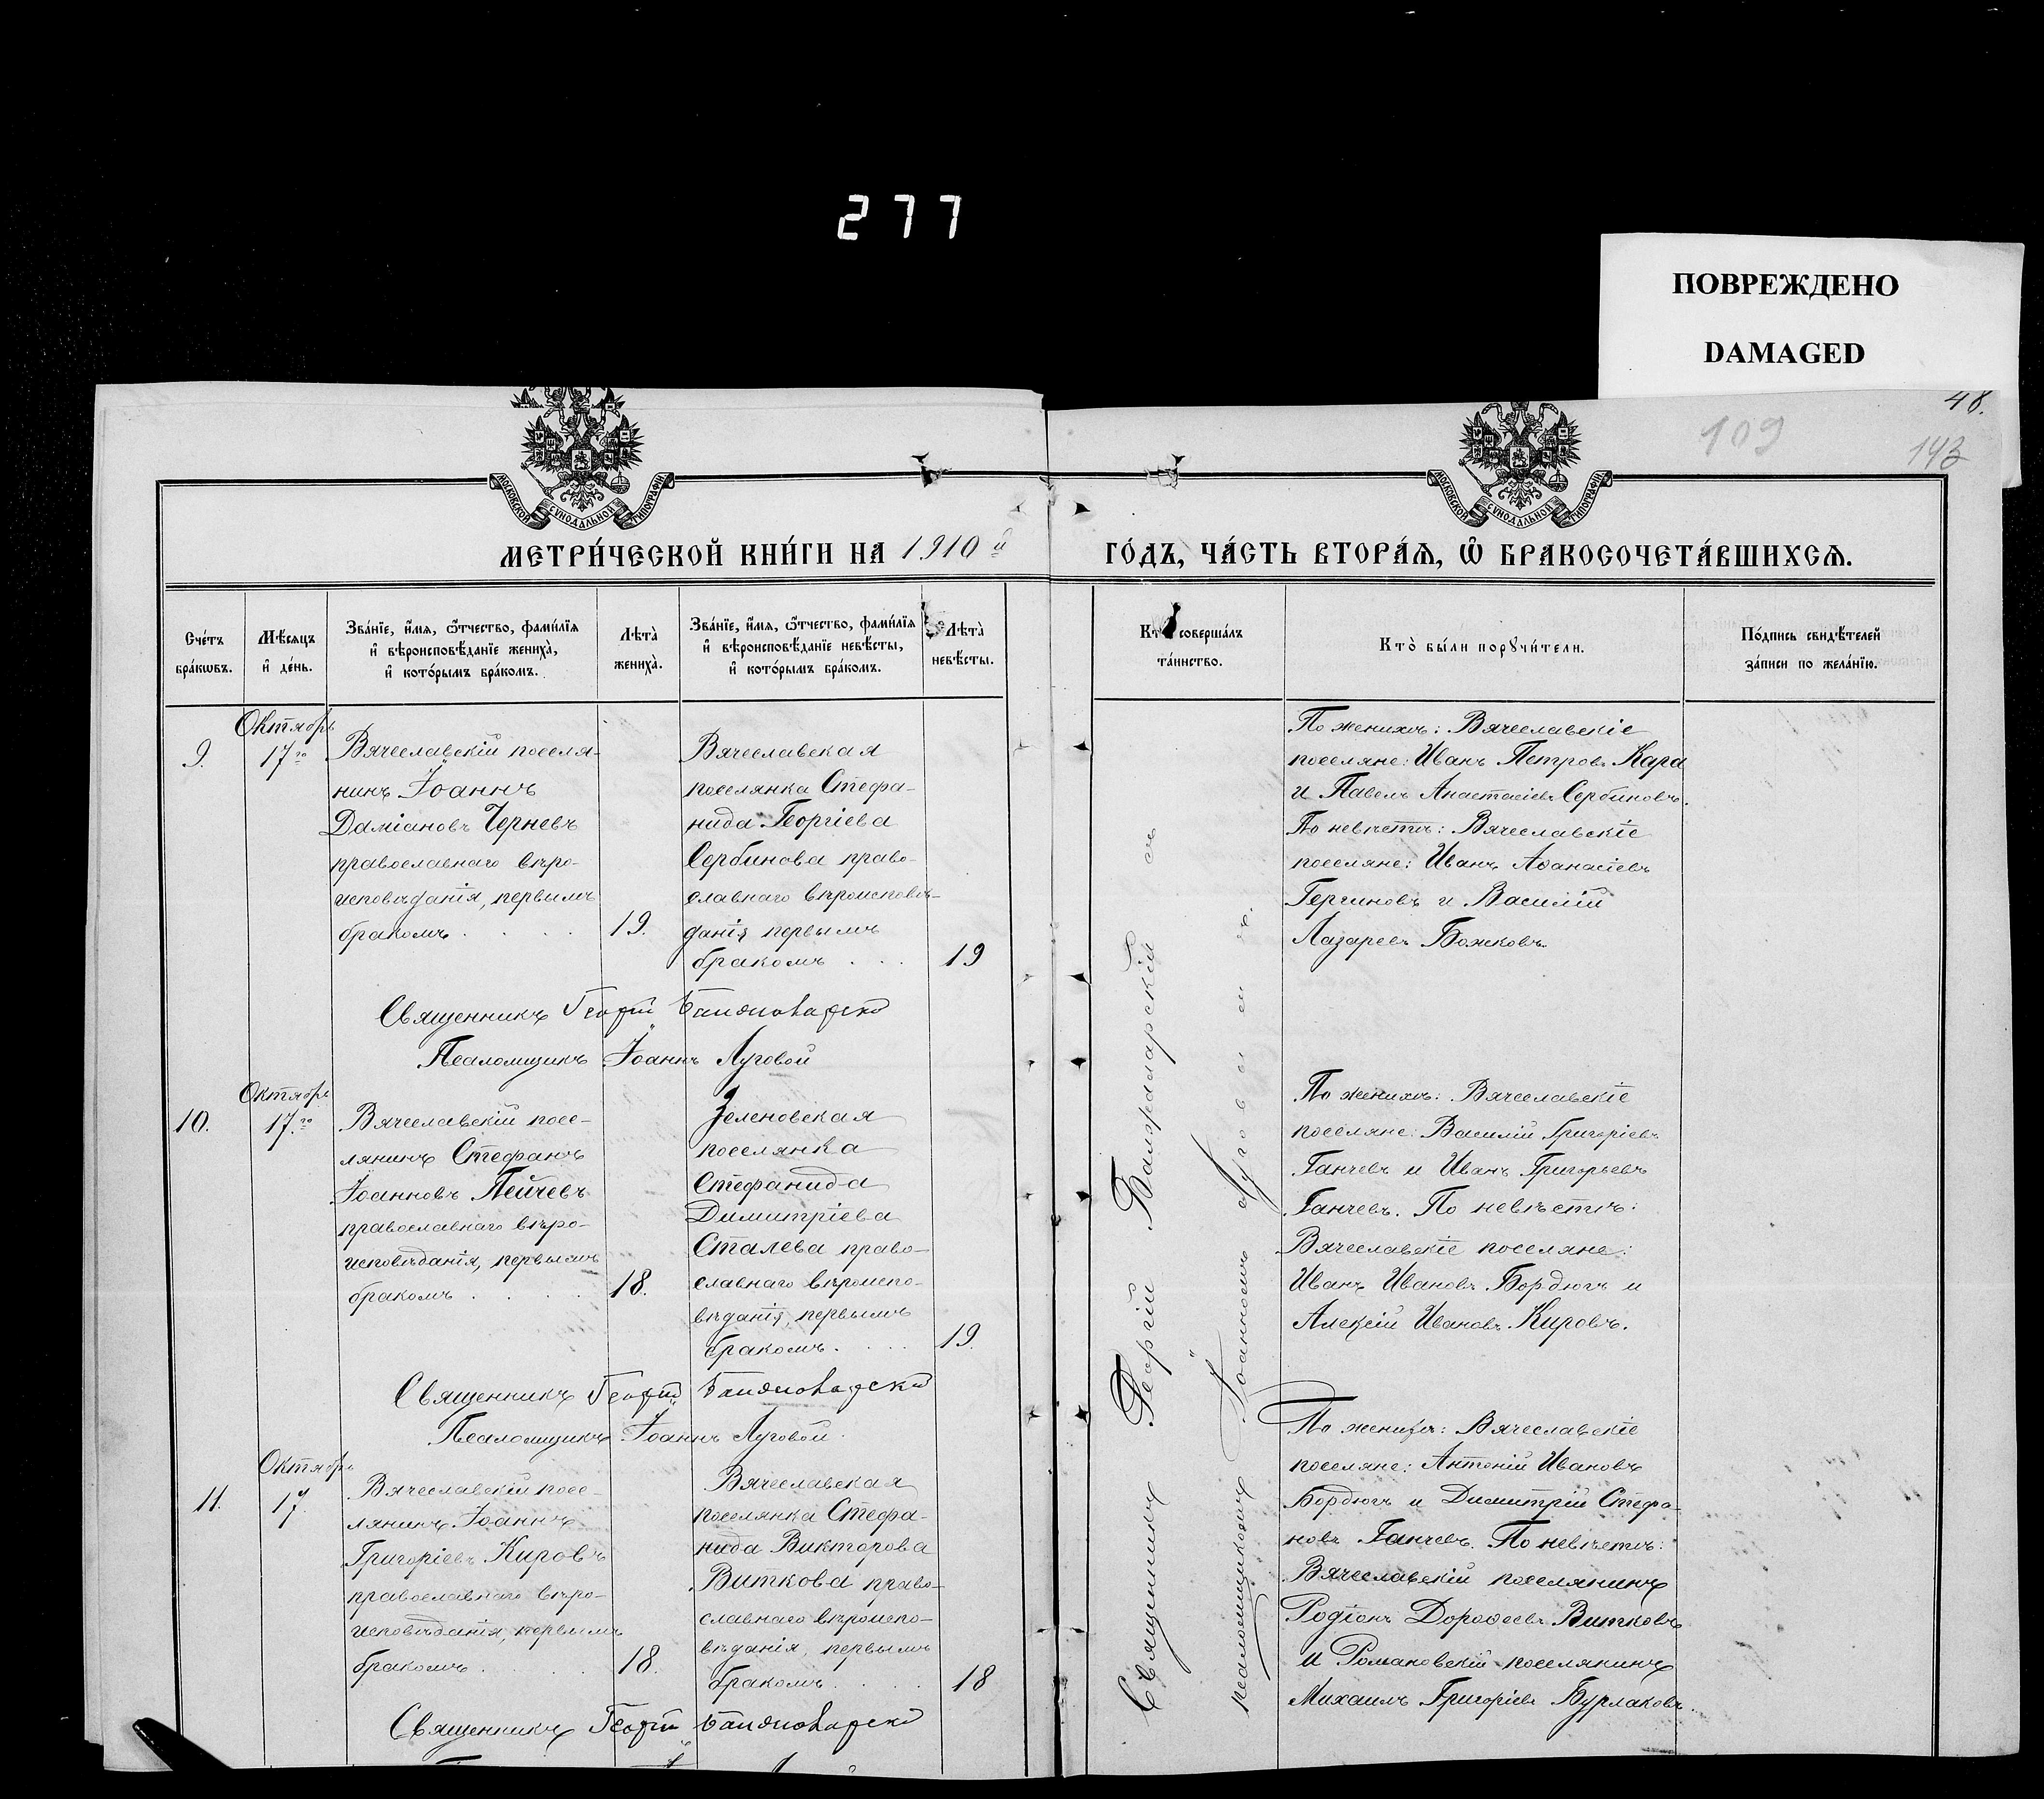 277
ПОВРЕЖДЕНО
DAMAGED
48.
109
143
МОСКОВСКОЙ СУНОДАЛЬНОЙ ТИПОГРАФІИ
МОСКОВСКОЙ СУНОДАЛЬНОЙ ТИПОГРАФІИ
МЕТРИ́ЧЕСКОЙ КНИ́ГИ НА 1910й ГО́ДЪ, ЧА́СТЬ ВТОРА́Ѧ, Ѽ БРАКОСОЧЕТА́ВШИХСѦ.
Сче́тъ
бра́кѡвъ.
Мѣ́сѧцъ
и҆ де́нь.
Зва́нїе, и҆́мѧ, ѻ҆́тчество, фамѝлїѧ
и҆ вѣроисповѣ́данїе жениха̀,
и҆ кото́рымъ бра́комъ.
Лѣта̀
жениха̀.
Зва́нїе, и҆́мѧ, ѻ҆́тчество, фамѝлїѧ
и҆ вѣроисповѣ́данїе невѣ́сты,
и҆ кото́рымъ бра́комъ.
Лѣта̀
невѣ́сты.
Кто̀ соверша́лъ
та́инство.
Кто̀ бы́ли порꙋчи́тели.
По́дпись свидѣ́телей
за́писи по жела́нїю.
Октябрь
9.
17го
Вячеславскій поселя-
нинъ Іоаннъ
Даміановъ Черневъ
православнаго вѣро-
исповѣданія, первымъ
бракомъ . . . .
19.
Вячеславская
поселянка Стефа-
нида Георгіева
Сербинова право-
славнаго вѣроисповѣ-
данія первымъ
бракомъ . . .
19
По женихѣ: Вячеславскіе
поселяне: Иванъ Петровъ Кара
и Павелъ Анастасіевъ Сербиновъ.
По невѣстѣ: Вячеславскіе
поселяне: Иванъ Аѳанасіевъ
Гергиновъ и Василій
Лазаревъ Божковъ.
Священникъ Георгій
Псаломщикъ Іоаннъ Луговой
Октябрь
10.
17.го
Вячеславскій посе-
лянинъ Стефанъ
Іоанновъ Пейчевъ
православнаго вѣро-
исповѣданія, первымъ
бракомъ . . . .
18.
Зеленовская
поселянка
Стефанида
Димитріева
Сталева право-
славнаго вѣроиспо-
вѣданія, первымъ
бракомъ. . . .
19.
По женихѣ: Вячеславскіе
поселяне: Василій Григоріевъ
Ганчевъ и Иванъ Григорьевъ
Ганчевъ. По невѣстѣ:
Вячеславскіе поселяне:
Иванъ Ивановъ Бордюгъ и
Алексій Ивановъ Кировъ.
Священникъ Георгій
Псаломщикъ Іоаннъ Луговой.
Октябрь
11.
17
Вячеславскій посе-
лянинъ Іоаннъ
Григоріевъ Кировъ
православнаго вѣро-
исповѣданія, первымъ
бракомъ . . . .
18.
Вячеславская
поселянка Стефа-
нида Викторова
Виткова право-
славнаго вѣроиспо-
вѣданія, первымъ
бракомъ. . . .
18
По женихѣ: Вячеславскіе
поселяне: Антоній Ивановъ
Бордюгъ и Димитрій Стефа-
новъ Ганчевъ. По невѣстѣ:
Вячеславскій поселянинъ
Родіонъ Дороѳеевъ Витковъ
и Романовскій поселянинъ
Михаилъ Григоріевъ Бурлаковъ.
Священникъ Георгій
Священникъ Георгій съ
псаломщикомъ Іоанномъ Луговымъ.